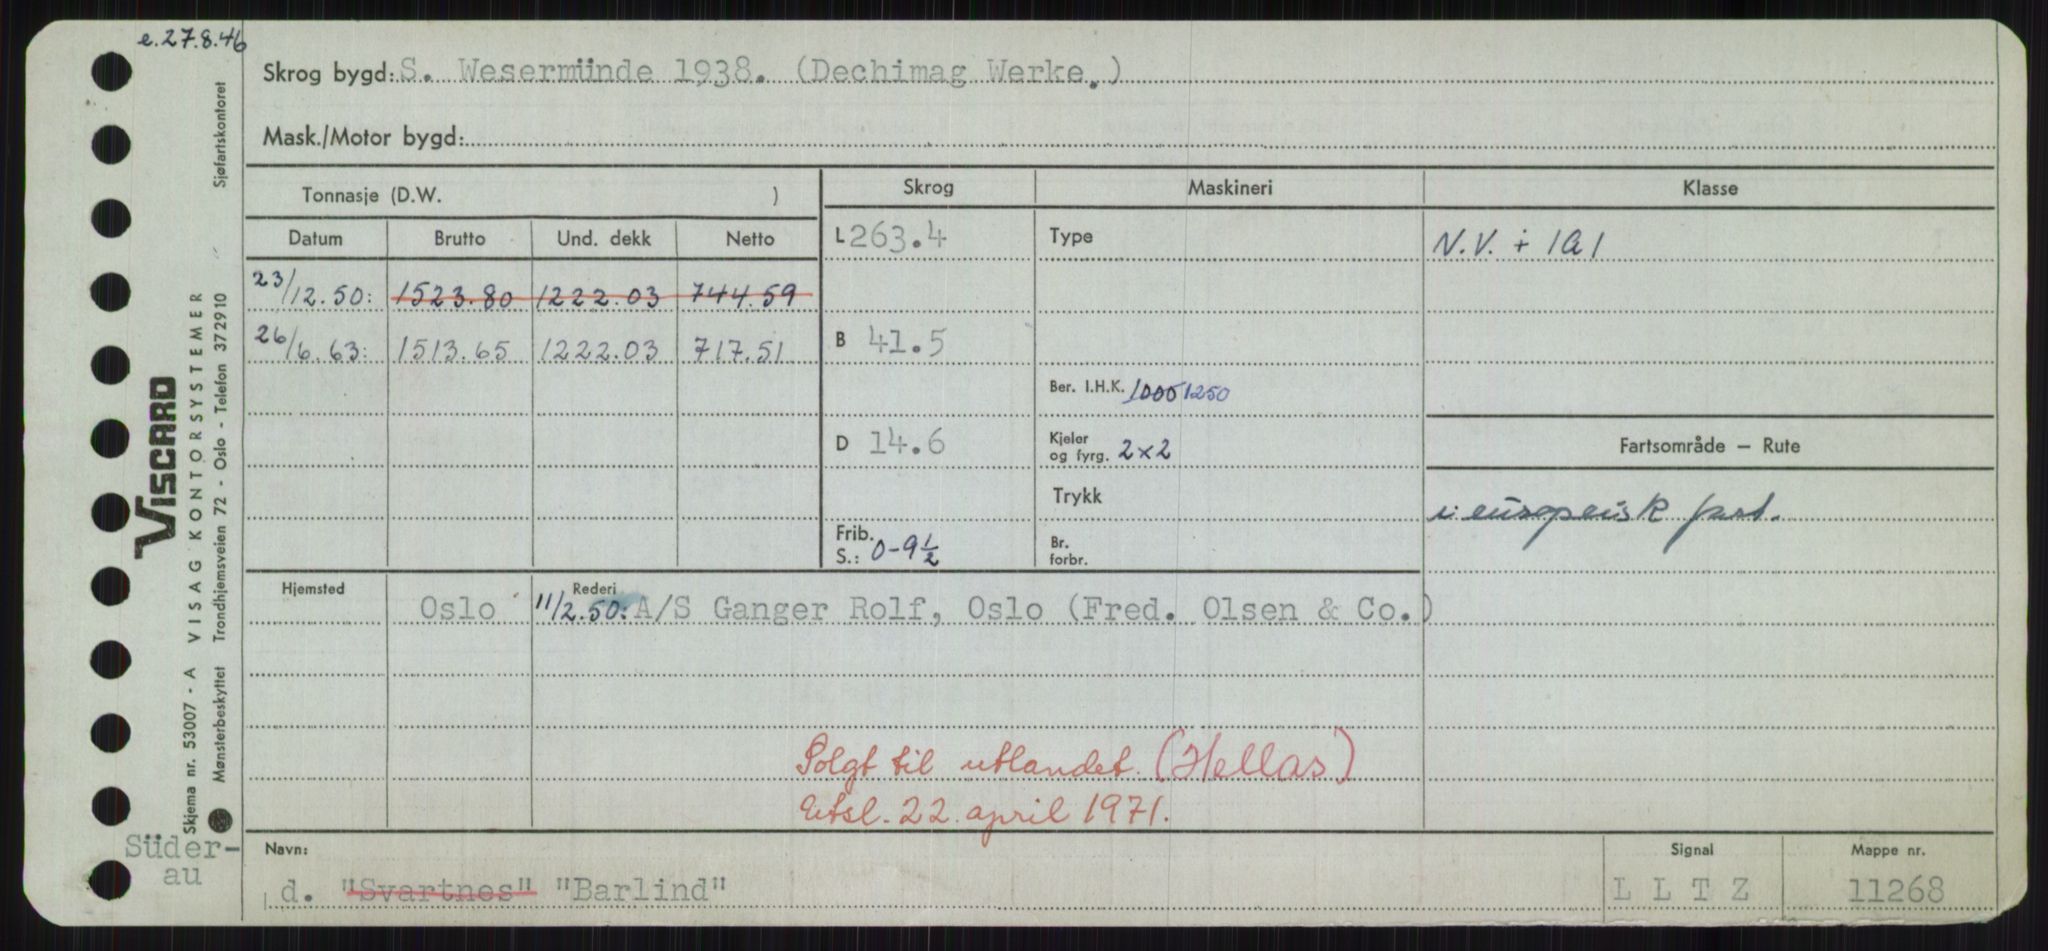 e.27.8.46
Skrog bygd: S. Wesermünde 1938. (Dechimag Werke.)
Mask./Motor bygd:
Tonnasje (D.W. )
Datum Brutto Und. dekk Netto
23/12.50: 1523.80 1222.03 744.59
26/6.63: 1513.65 1222.03 717.51
Skrog
L 263.4
B 41.5
D 14.6
Frib.
S.: 0-9½
Maskineri
Type
Ber. I.H.K. 1000 1250
Kjeler
og fyrg. 2x2
Trykk
Br.
forbr.
Klasse
N.V. + 1A1
Fartsområde — Rute
i europeisk fart.
Hjemsted Rederi
Oslo 11/2.50: A/S Ganger Rolf, Oslo (Fred. Olsen & Co.)
Solgt til utlandet. (Hellas)
Utsl. 22. april 1971.
Navn:
d. "Svartnes" "Barlind"
Signal
L L T Z
Mappe nr.
11268
Süder-
au
VISCARD
VISAG KONTORSYSTEMER
Skjema nr. 53007 - A
Mønsterbeskyttet Trondhjemsveien 72 - Oslo - Telefon 372910 " Sjøfartskontoret